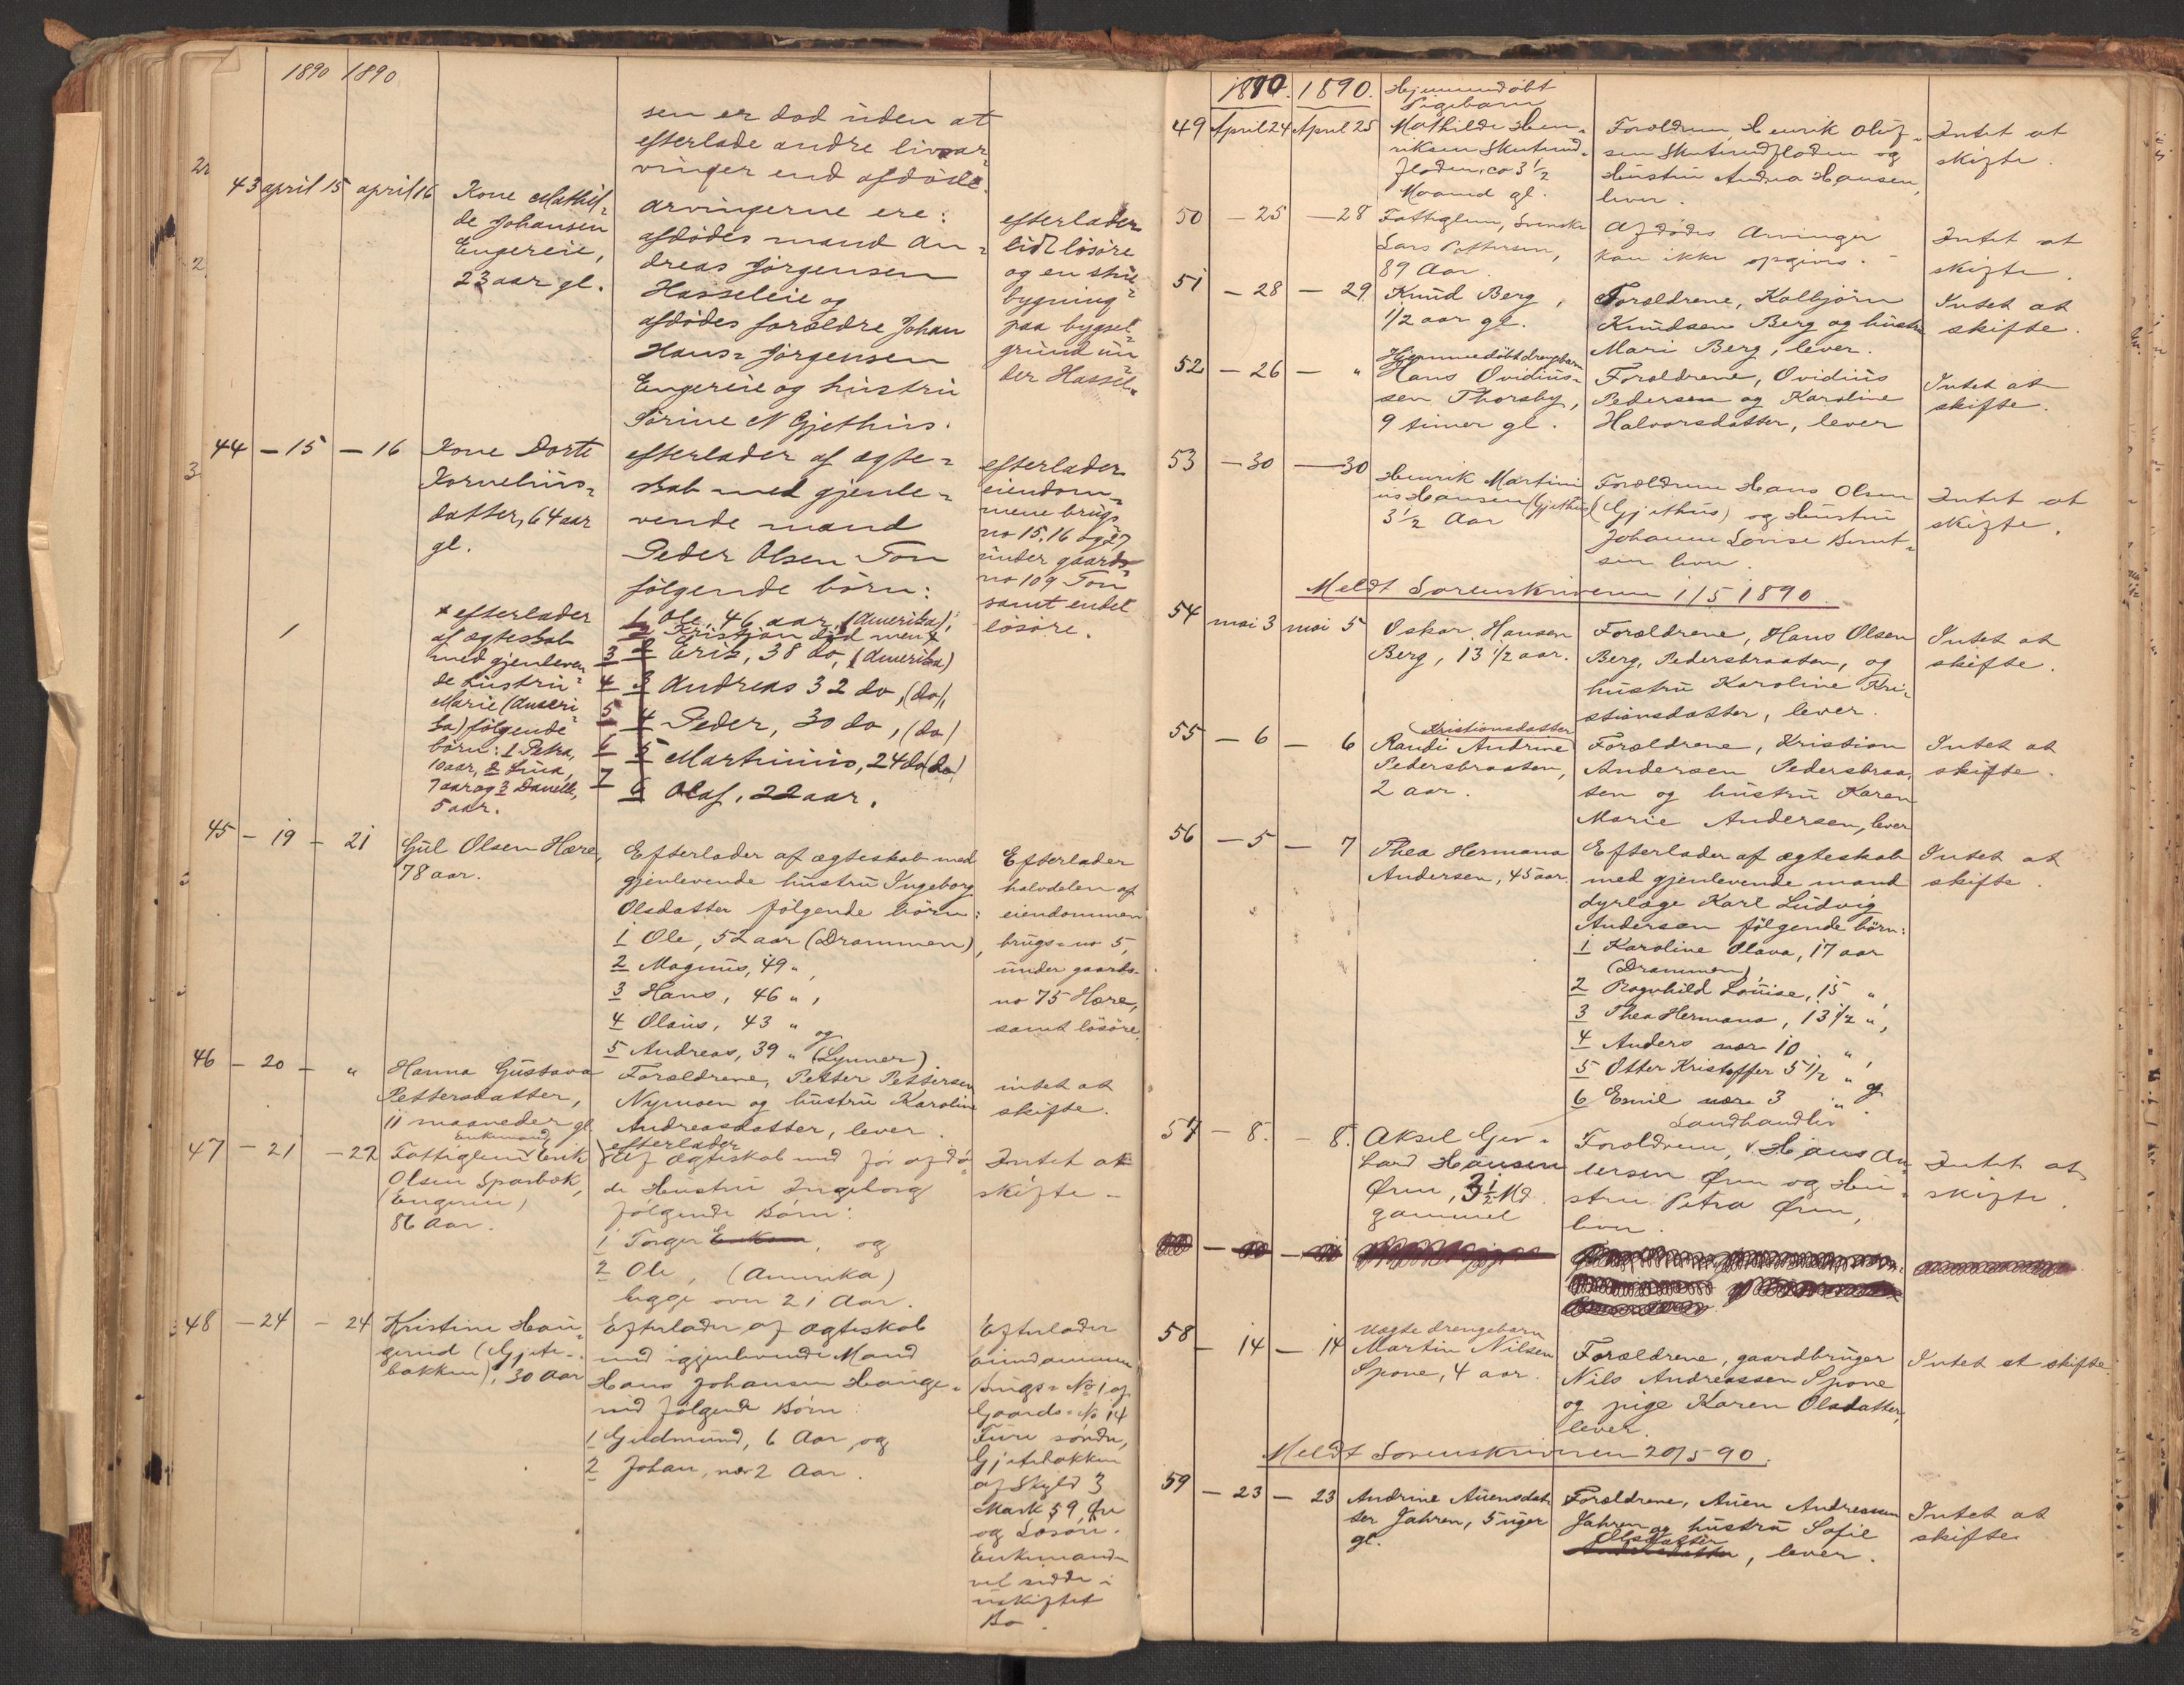 1890 1890
sen er död uden at
efterlade andre livsar=
vinger end afdöde.
43 april 15 april 16 Kone Mathil=
de Johansen
Engereie,
23 aar gl.
Arvingerne ere:
afdödes mand An=
dreas Jörgensen
Hasseleie og
afdödes forældre Johan
Hans= Jörgensen
Engereie og hustru
Sörine N Gjethus.
efterlader
lidt lösöre
og en stue
bygning
paa bygsel=
grund un=
der Hassel.
44 – 15 – 16 Kone Dorte
Kornelius=
datter, 64 aar
gl.
efterlader af ægte=
skab med gjenle=
vende mand
Peder Olsen Ton
fölgende börn:
1 Ole, 46 aar, (Amerika),
2 Kristian död men x
3 2 Erik, 38 do, (Amerika)
4 3 Andreas 32 do, (do),
5 4 Peder, 30 do, (do)
6 5 Martinius, 24 do (do)
7 6 Olaf, 22 aar.
efterlader
eiendom=
mene brugs
no 15, 16 og 27
under gaards=
no 109 Ton
samt endel
lösöre.
x efterlader
af ægteskab
med gjenleven
de hustru
Marie (Ameri
ka) fölgende
börn: 1 Petra,
10 aar, 2
7 aar og 3
5 aar.
45 – 19 – 21 Gul Olsen Hære,
78 aar.
Efterlader af ægteskab med
gjenlevende hustru Ingeborg
Olsdatter fölgende börn:
1 Ole, 52 aar (Drammen),
2 Magnus, 49 " ,
3 Hans, 46 " ,
4 Olaus, 43 " og
5 Andreas, 39 " (Lynner)
Efterlader
halvdelen af
eiendommen
brugs=no 5,
under gaards-
no 75 Hære,
samt lösöre.
46 – 20 – " Hanna Gustava
Pettersdatter,
11 maaneder gl
Forældrene, Petter Pettersen
Nymoen og hustru Karoline
Andreasdatter, lever.
intet at
skifte.
47 – 21 – 22 Fattiglem enkemand Erik
Olsen Sparbok,
(Engerne)
86 Aar.
efterlader
Af Ægteskab med før afdö=
de Hustru Ingeborg
følgende Børn:
1 Torger, og
2 Ole, (Amerika)
begge over 21 Aar.
Intet at
skifte –
48 – 24 – 24 Kristine Hau=
gerud (Gjete-
bakken), 30 Aar
Efterlader af Ægteskab
med igjenlevende Mand
Hans Johansen Hauge=
rud følgende Børn:
1 Gudmund, 6 Aar, og
2 Johan, nær 2 Aar.
Efterlader
eiendommen
Brugs= No 1 af
Gaards= No 14
Fure søndre,
Gjetebakken
af Skyld 3
Mark 59 Øre
og Løsøre.
Enkemanden
vil sidde i
uskiftet
Bo.
1890. 1890.
49 April 24 April 25 Hjemmedøbt
Pigebarn
Mathilde Hen=
riksen Skuterud=
floden, ca 3 1/2
Maaned gl.
Forældrene, Henrik Oluf=
sen Skuterudfloden og
Hustru Andrea Hansen,
lever.
Intet at
skifte.
50 – 25 – 28 Fattiglem, Svenske
Lars Pettersen,
89 Aar.
Afdødes Arvinger
kan ikke opgives. –
Intet at
skifte.
51 – 28 – 29 Knud Berg,
1/2 aar gl.
Forældrene, Kolbjörn
Knudsen Berg og hustru
Mari Berg, lever.
Intet at
skifte.
52 – 26 – " Hjemmedöbt drengebarn
Hans Ovidius=
sen Thorsby,
9 timer gl.
Forældrene, Ovidius
Pedersen og Karoline
Halvorsdatter, lever
Intet at
skifte.
53 – 30 – 30 Henrik Martini
us Hansen (Gjethus)
3 1/2 Aar
Forældrene Hans Olsen
(Gjethus) og Hustru
Johanne Lovise Bernt=
sen lever.
Intet at
skifte.
Meldt Sorenskriveren 1/5 1890.
54 mai 3 mai 5 Oskar Hansen
Berg, 13 1/2 aar.
Forældrene, Hans Olsen
Berg, Pedersbraaten, og
hustru Karoline Kri=
stiansdatter, lever.
Intet at
skifte.
55 – 6 – 6 Kristiansdatter
Randi Andrine
Pedersbraaten,
2 aar.
Forældrene, Kristian
Andersen Pedersbraa=
ten og hustru Karen
Marie Andersen, lever
Intet at
skifte.
56 – 5 – 7 Thea Hermana
Andersen, 45 aar.
Efterlader af ægteskab
med gjenlevende mand
dyrlæge Karl Ludvig
Andersen fölgende börn:
1 Karoline Olava, 17 aar
(Drammen),
2 Ragnhild Louise, 15 " ,
3 Thea Hermana, 13 1/2 " ,
4 Anders nær 10 " ,
5 Otter Kristoffer 5 1/2 " og
6 Emil nær 3 " .
Intet at
skifte.
57 – 8. – 8. Aksel Ger=
hard Hansen
Øren, 3 1/2 Md.
gammel
Landhandler
Forældrene, Hans An
dersen Øren og Hu=
stru Petra Øren,
lever.
Intet at
skifte.
58 – 14 – 14 uægte drengebarn
Martin Nilsen
Spone, 4 aar.
Forældrene, gaardbruger
Nils Andreassen Spone
og pige Karen Olsdatter,
lever.
Intet at skifte.
Meldt Sorenskriveren 20/5 90.
59 – 23 – 23 Andrine Auensdat=
ter Jahren, 5 uger
gl.
Forældrene, Auen Andreassen
Jahren og hustru Sofie
Olsdatter, lever.
Intet at
skifte.